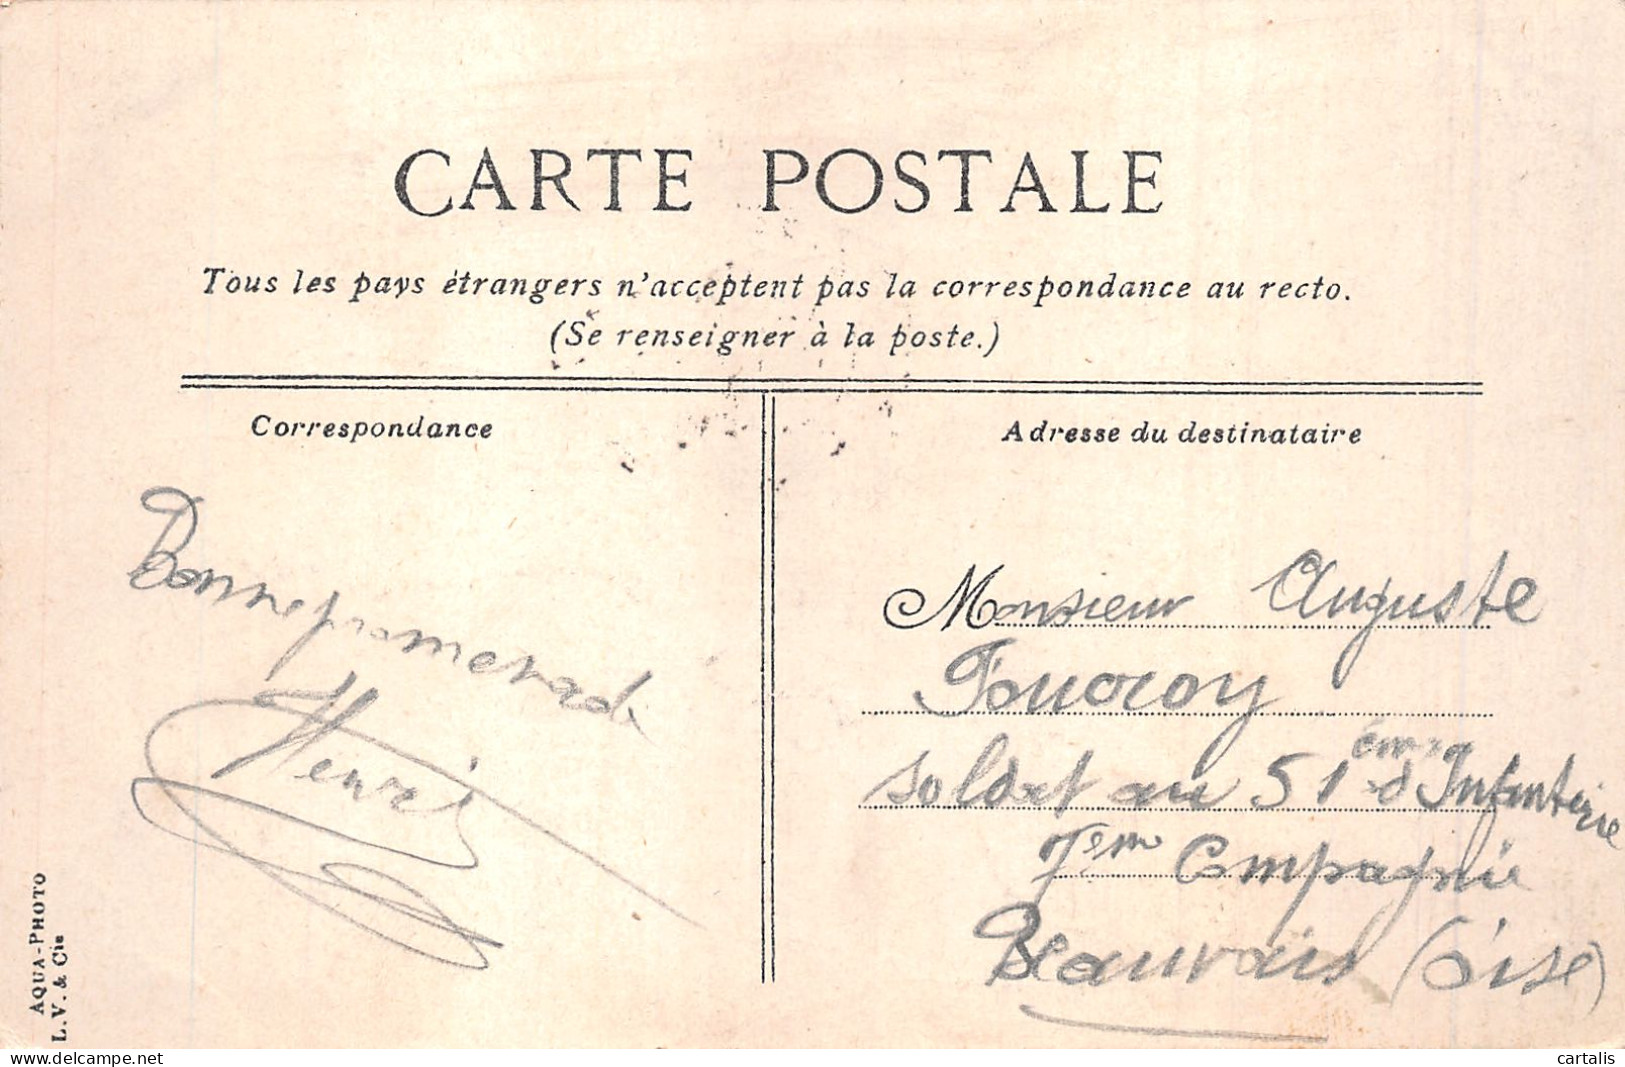 CARTE POSTALE
Tous les pays étrangers n'acceptent pas la correspondance au recto.
(Se renseigner à la poste.)
Correspondance
Adresse du destinataire
Bonne promenade
Henri
Monsieur Auguste
Fourcroy
Soldat au 51ème d'Infanterie
7em Compagnie
Beauvais (Oise)
AQUA-PHOTO
L.V. & Cie
cartalis